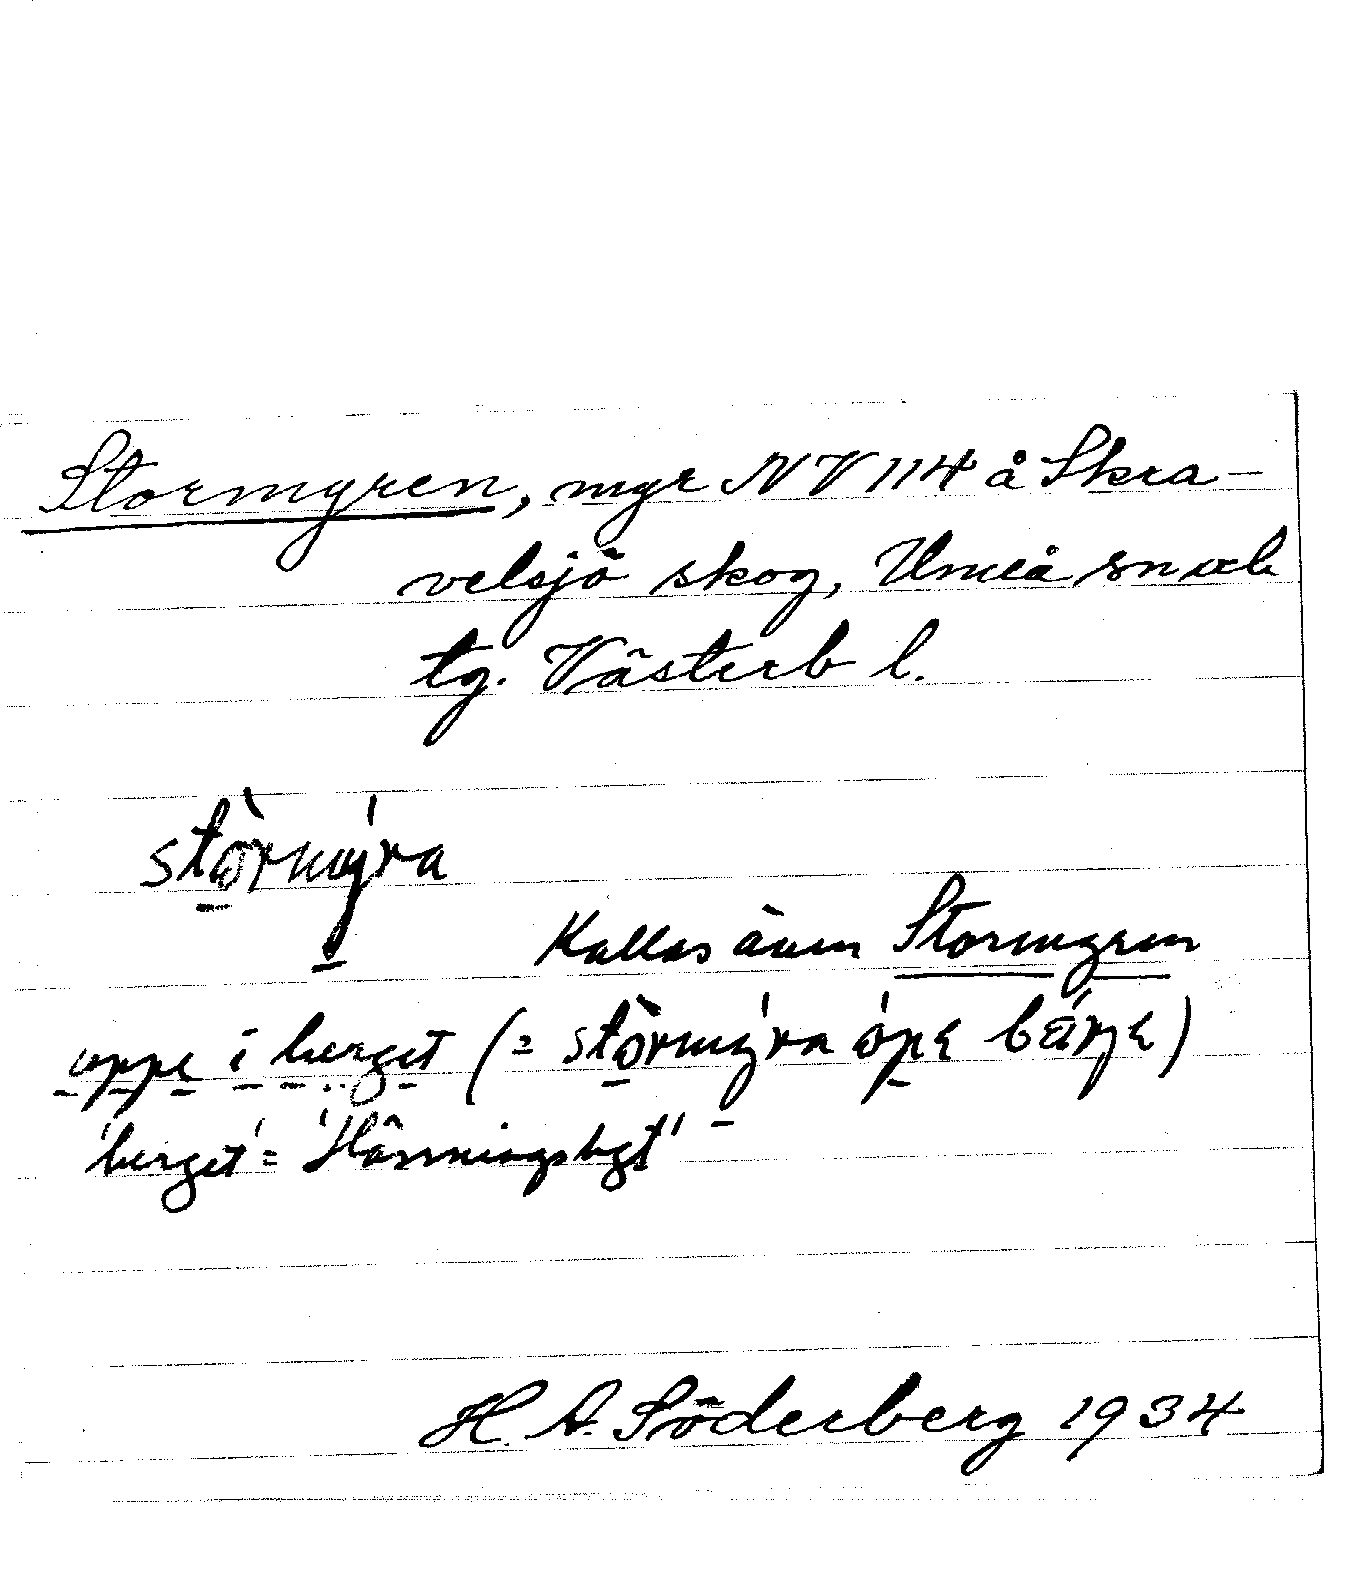 Stormyren, myr NV 114 å Skra-
velsjö skog, Umeå sn o.ch
tg. Västerb l.
stòrmy̍ra
Kallas även Stormyren
uppe i berget (= stòrmy̍ra ópe bǽrje)
'berget' = 'Hässningsbgt'
H. A. Söderberg 1934